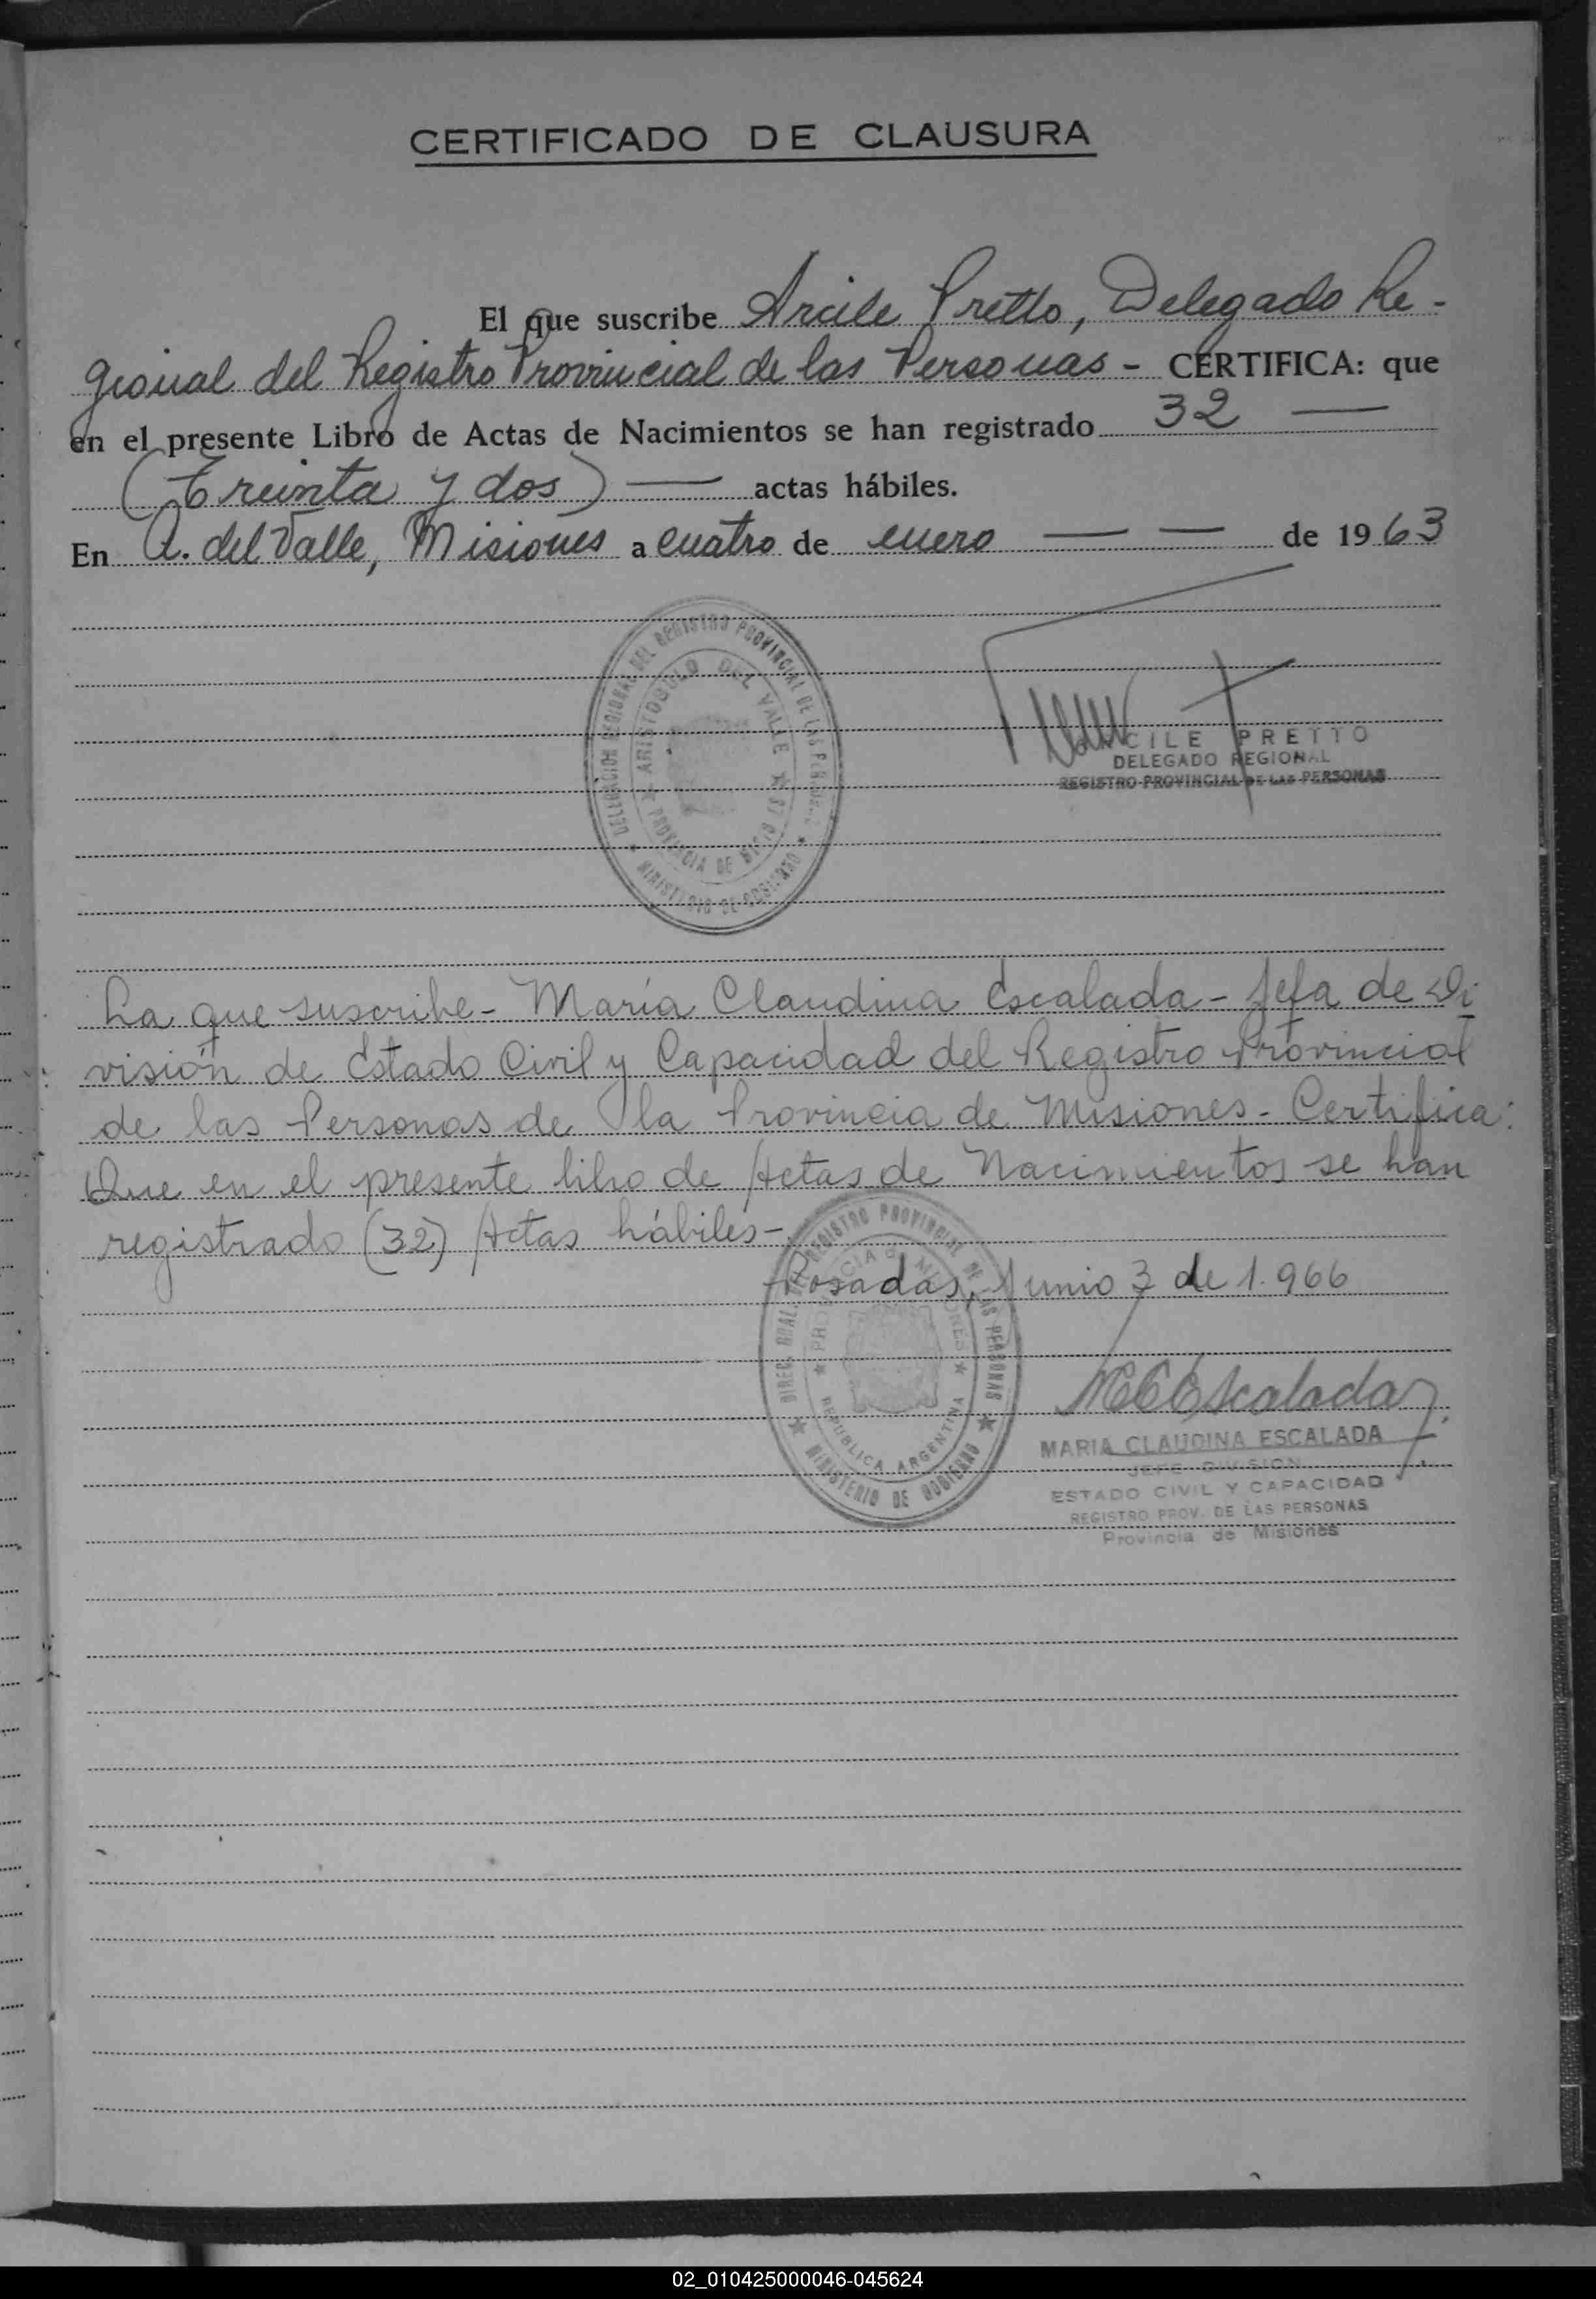 CERTIFICADO DE CLAUSURA
El que suscribe Arcile Pretto, Delegado Re-
gional del Registro Provincial de las Personas - CERTIFICA: que
en el presente Libro de Actas de Nacimientos se han registrado 32 —
(Treinta y dos) — actas hábiles.
En A. del Valle, Misiones a cuatro de enero — — de 1963
DELEGACION REGIONAL DEL REGISTRO PROVINCIAL DE LAS PERSONAS
ARISTOBULO DEL VALLE
PROVINCIA DE MISIONES
MINISTERIO DE GOBIERNO
CILE PRETTO
DELEGADO REGIONAL
REGISTRO PROVINCIAL DE LAS PERSONAS
La que suscribe - María Claudina Escalada - Jefa de Di
visión de Estado Civil y Capacidad del Registro Provincial
de las Personas de la Provincia de Misiones - Certifica:
Que en el presente libro de Actas de Nacimientos se han
registrado (32) Actas hábiles -
Posadas, Junio 3 de 1.966
DIREC. GRAL. DEL REGISTRO PROVINCIAL DE LAS PERSONAS
PROVINCIA DE MISIONES
REPUBLICA ARGENTINA
MINISTERIO DE GOBIERNO
MCEscalada
MARIA CLAUDINA ESCALADA
JEFE DIVISION
ESTADO CIVIL Y CAPACIDAD
REGISTRO PROV. DE LAS PERSONAS
Provincia de Misiones
02_010425000046-045624